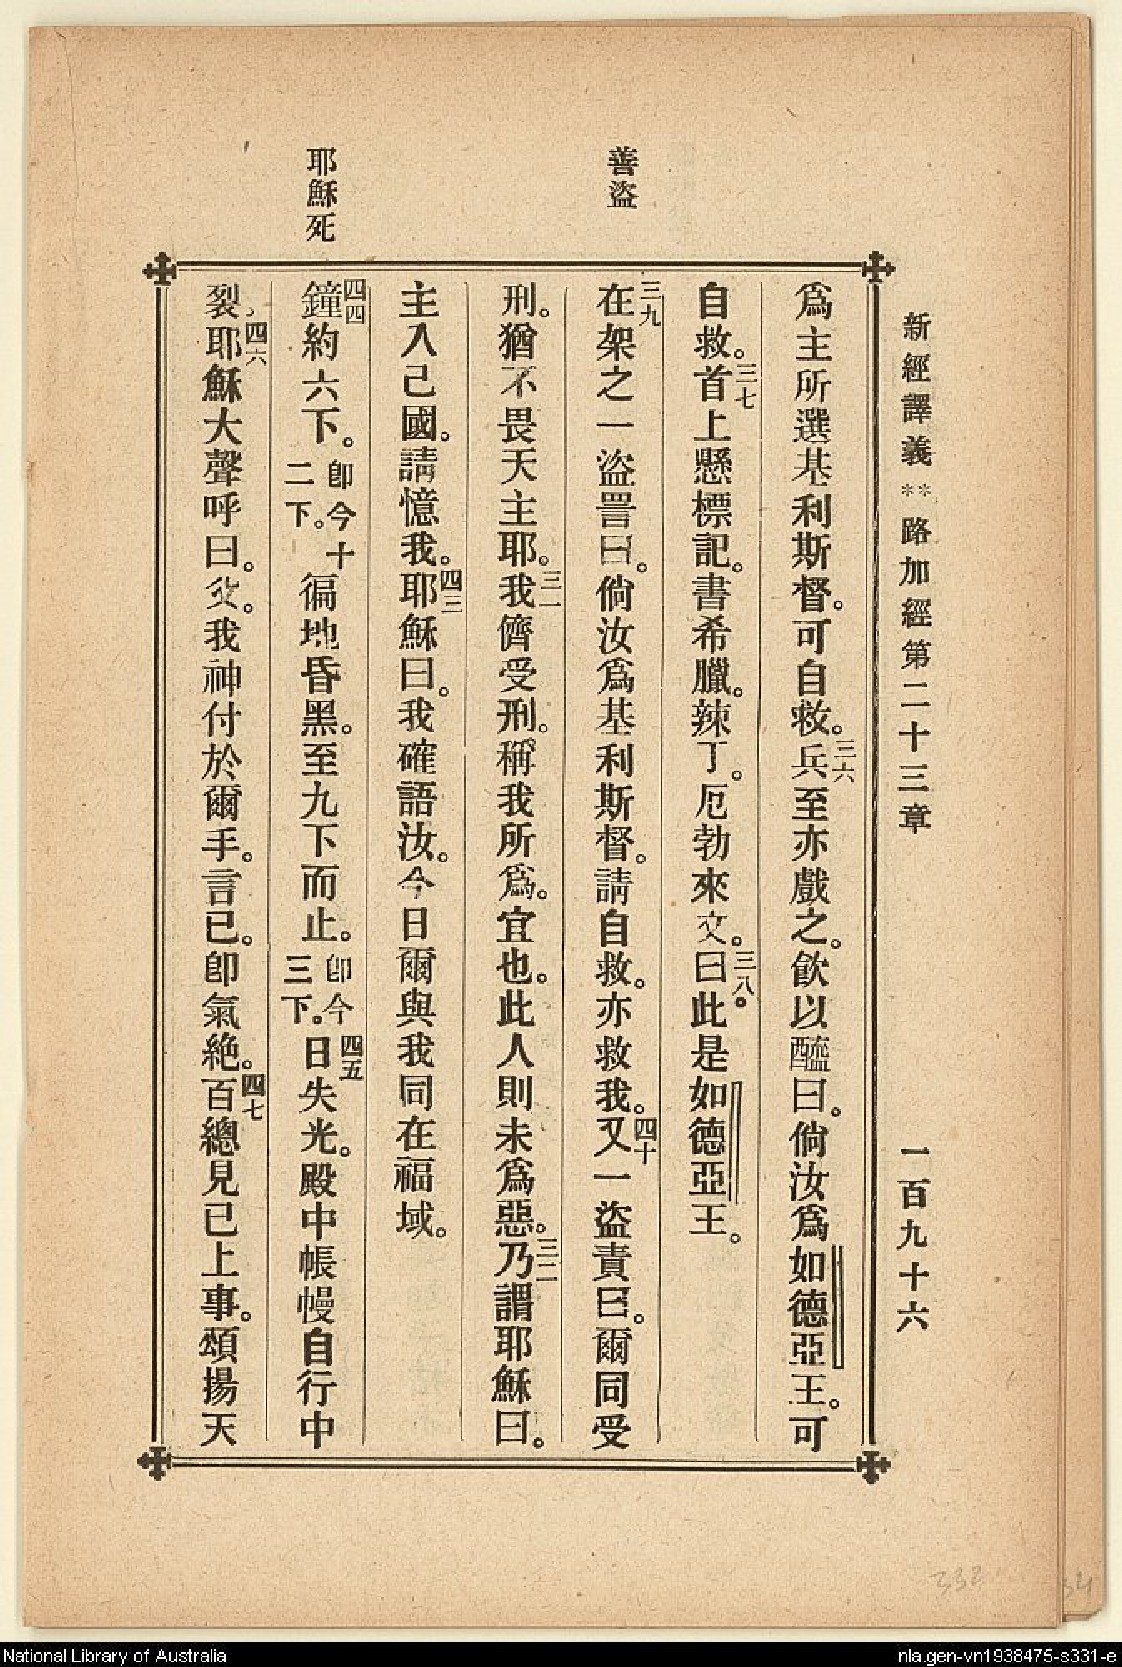 新經譯義 ** 路加經第二十三章 一百九十六
善盜
耶穌死
爲主所選基利斯督。可自救。三六兵至亦戲之。飲以醯曰。倘汝爲如德亞王。可
自救。三七首上懸標記。書希臘。辣丁。厄勃來文。三八曰此是如德亞王。
三九在架之一盜詈曰。倘汝爲基利斯督。請自救。亦救我。四十又一盜責曰。爾同受
刑。猶不畏天主耶。三一我儕受刑。稱我所爲。宜也。此人則未爲惡。三二乃謂耶穌曰。
主入己國。請憶我。四三耶穌曰。我確語汝。今日爾與我同在福域。
四四鐘約六下。卽今十二下。徧地昏黑。至九下而止。卽今三下。四五日失光。殿中帳幔自行中
裂。四六耶穌大聲呼曰。父。我神付於爾手。言已。卽氣絶。四七百總見已上事。頌揚天
332
34
National Library of Australia
nla.gen-vn1938475-s331-e